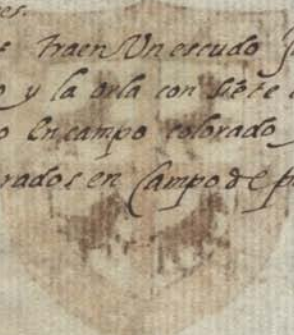 es.
traen Un escudo
y la orla con siete
en campo colorado
rados en Campo de p